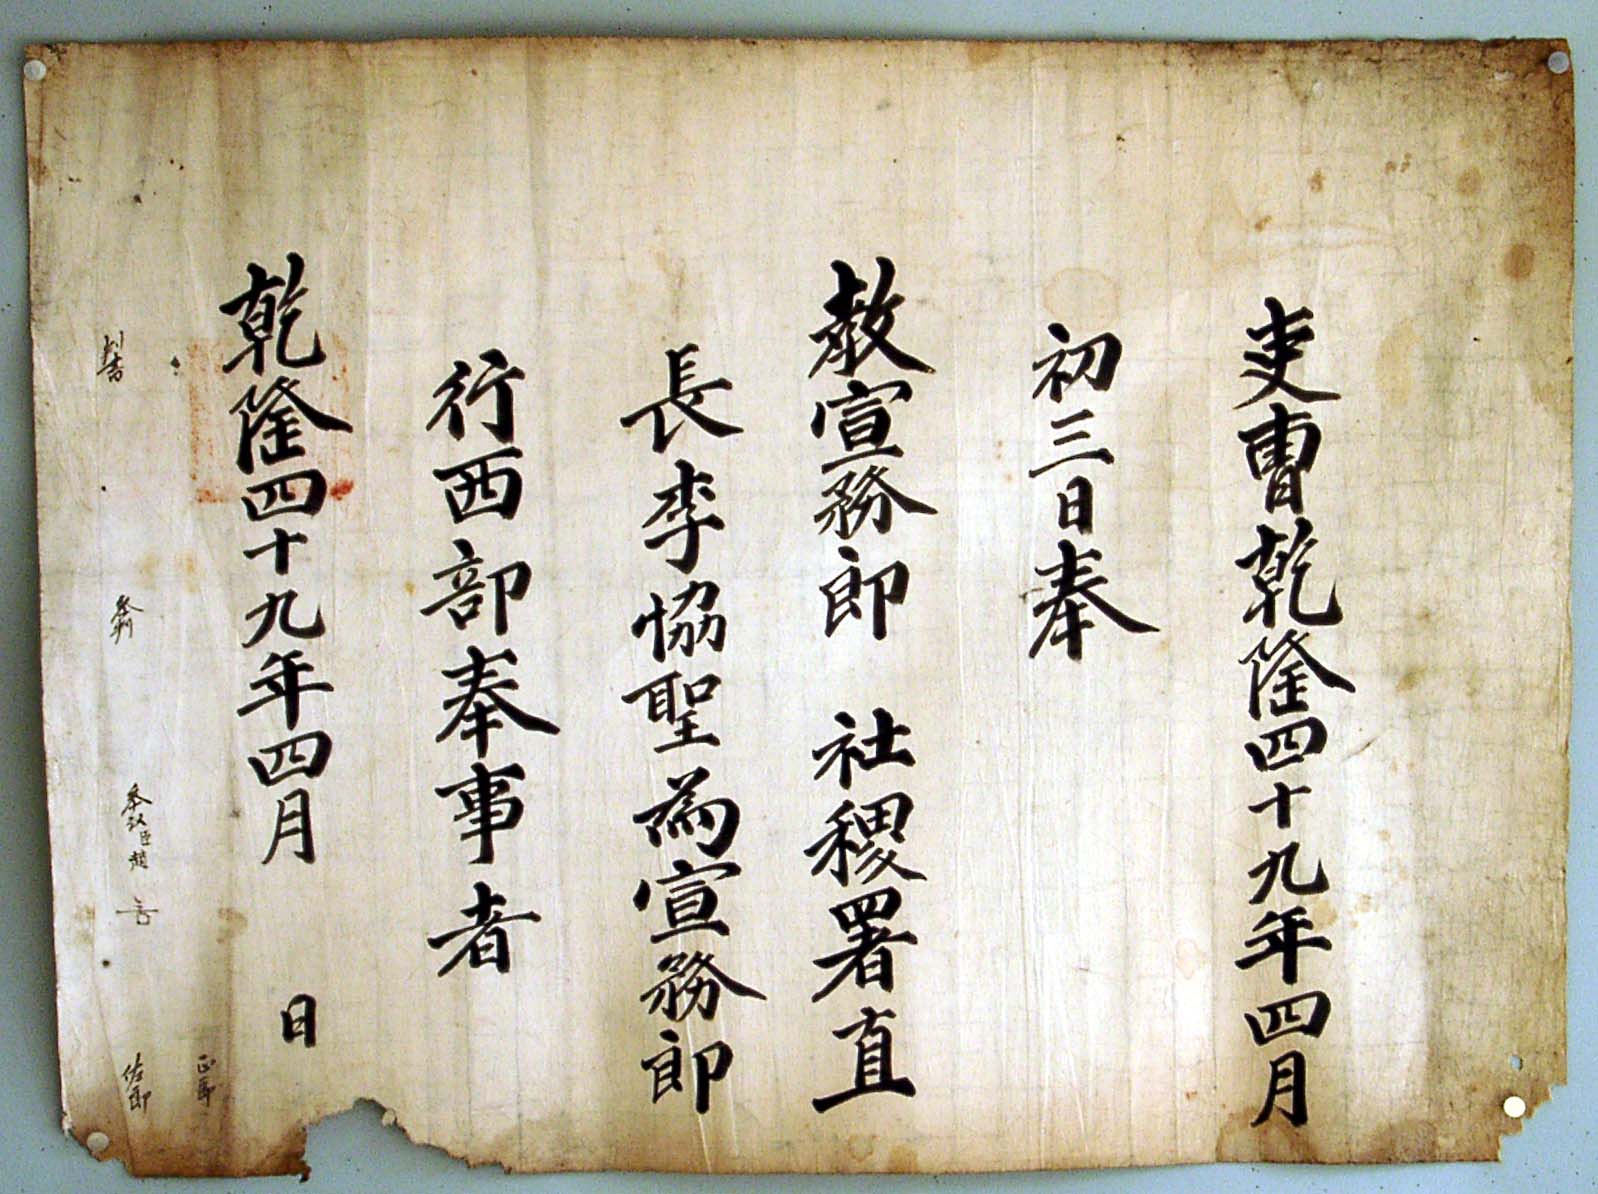 吏曹乾隆四十九年四月
初三日奉
敎宣務郎 社稷署直
長李恊聖為宣務郎
行西部奉事者
乾隆四十九年四月 日
判書
參判
參議臣趙
正郎
佐郎